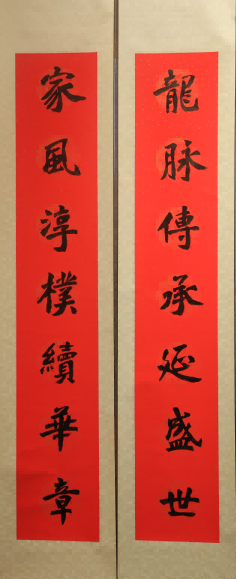 龍脉傳承延盛世
家風淳樸續華章